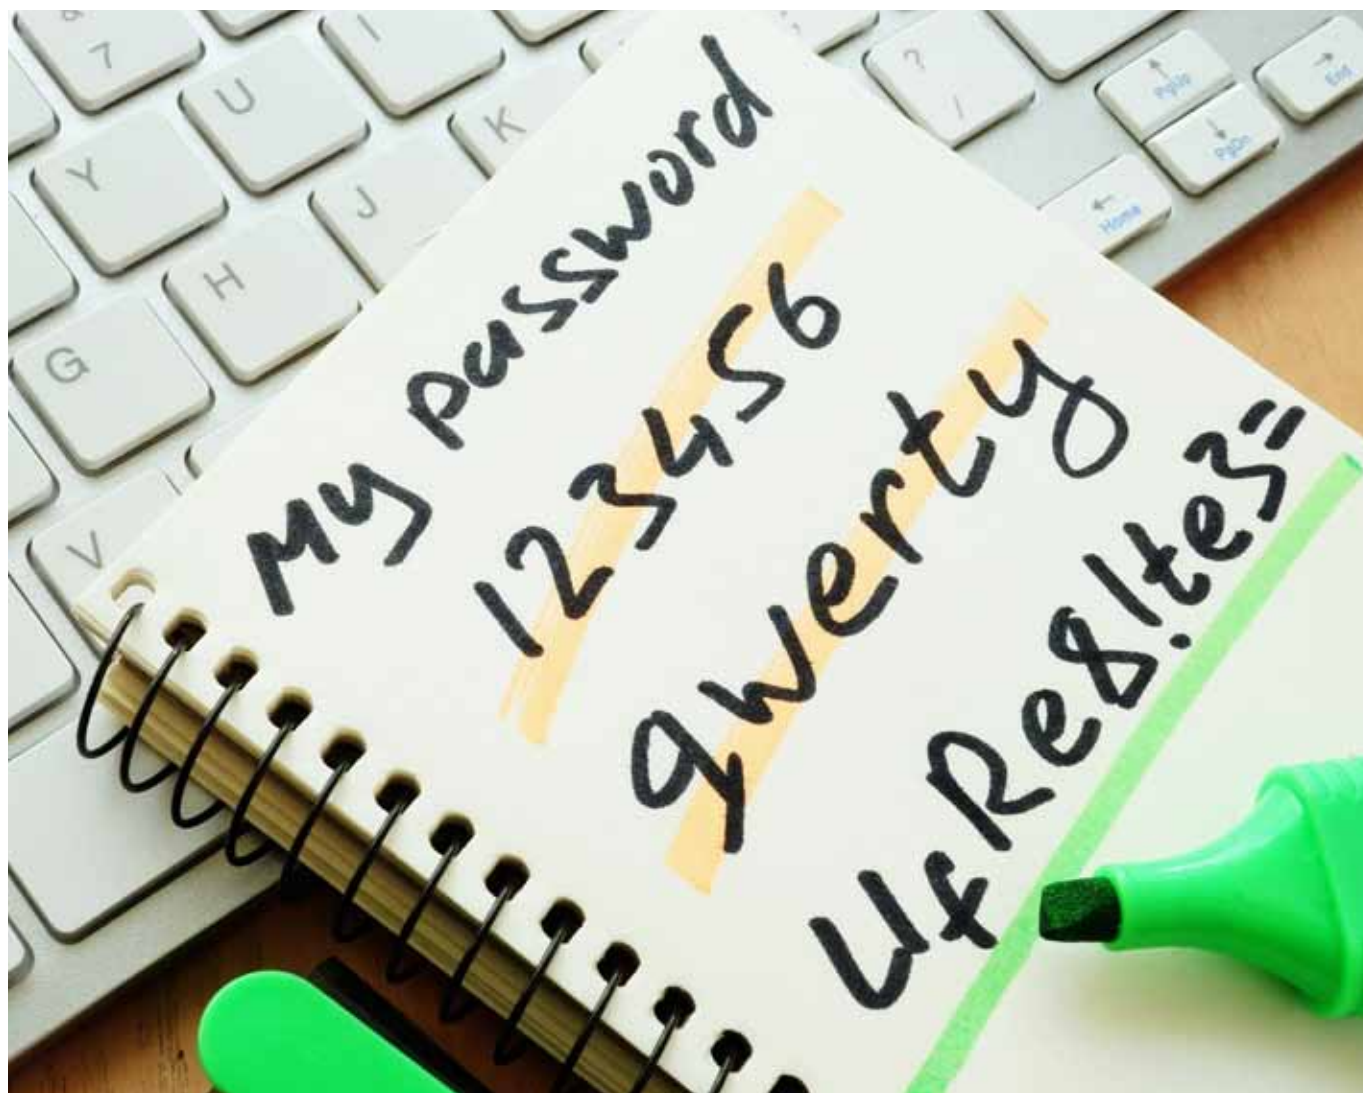 My password
123456
qwerty
UfRe8!te3=
7
U
I
K
Y
J
H
G
V
?
/
↑
PgUp
↓
PgDn
←
Home
→
End